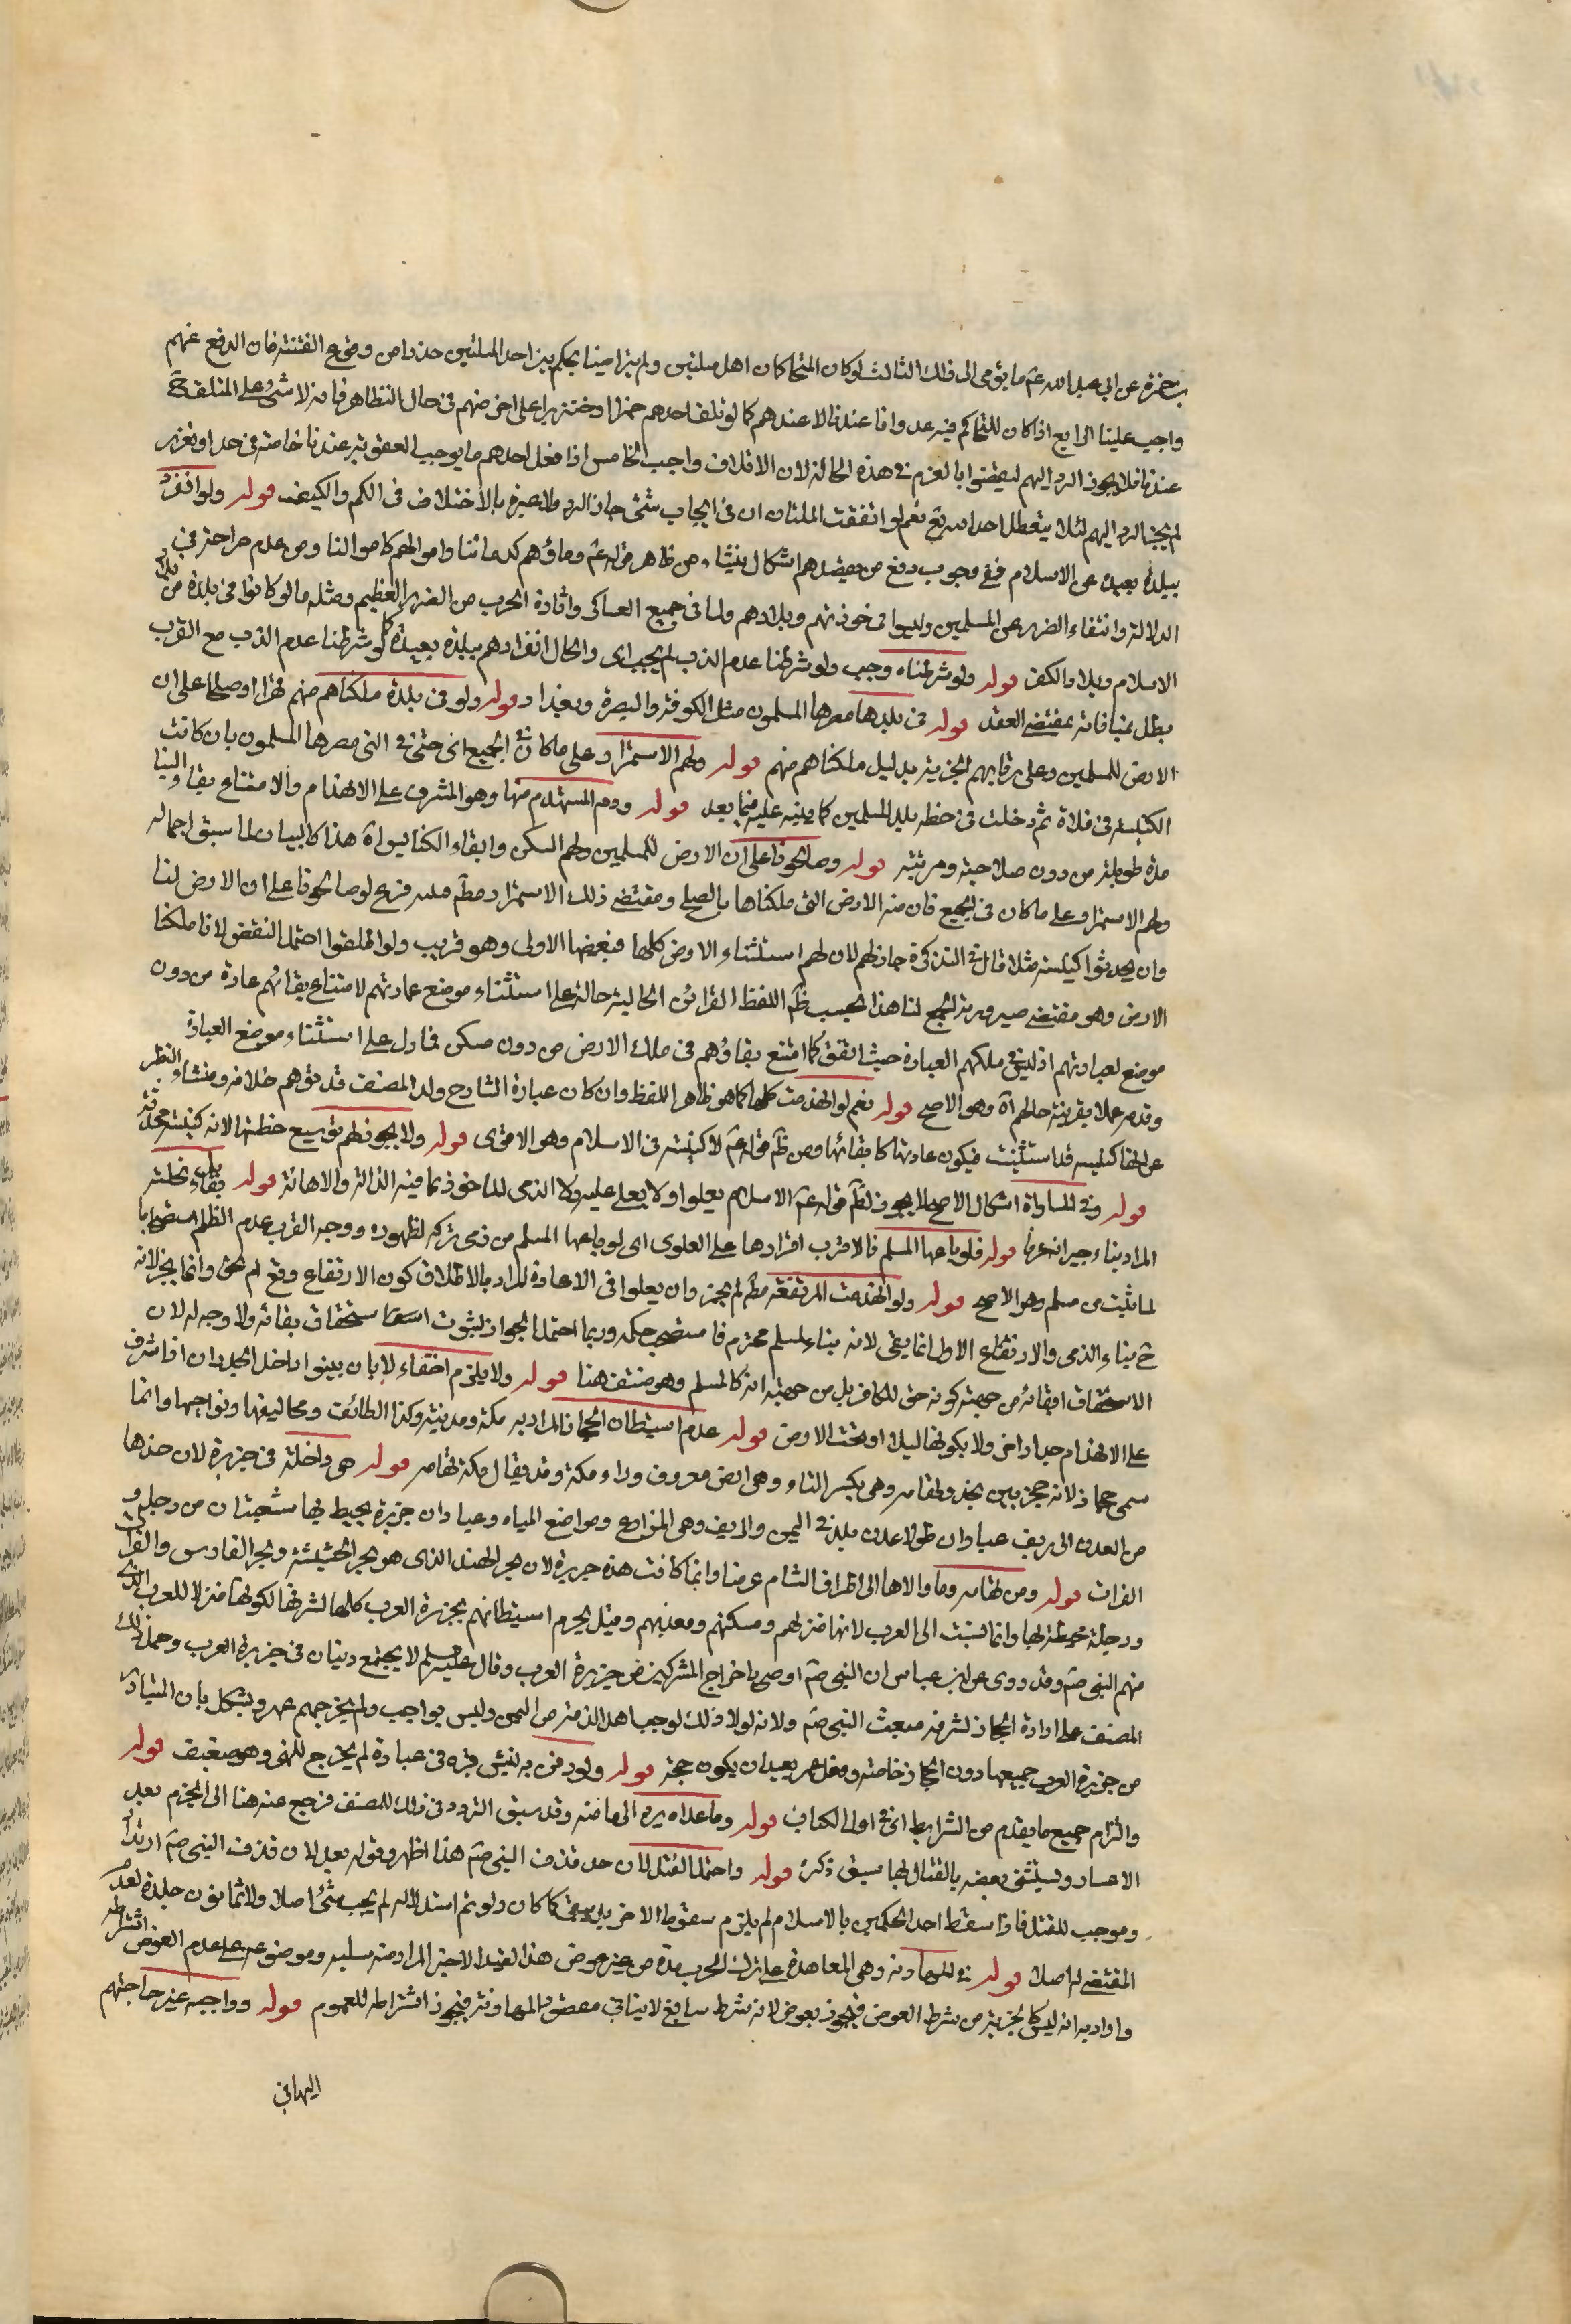 بن حمزة عن ابي عبد الله عم ما يؤمى الى ذلك الثالث لو كان المتحاكمان اهل ملتين ولم يتراضيا بحكم بين احد الملتين حذرا من وقوع الفتنة فان الدفع عنهم
واجب علينا الرابع اذا كان للتحاكم فيه عدوانا عندنا لا عندهم كما لو تلف احدهم خمرا او خنزيرا على اخر منهم في حال التظاهر فانه لا شئ على المتلف
عندنا فلا يجوز الرد اليهم ليقضوا بالغرم في هذه الحالة لان الاتلاف واجب الخامس اذا فعل احدهم ما يوجب العقوبة عندنا خاصة في حد او تعزير
لم يجز الرد اليهم لئلا يتعطل احد الله تع نعم لو اتفقت الملتان في ايجاب شئ جاز الرد ولا عبرة بالاختلاف في الكم والكيف قوله ولو انفرد
ببلدة بعيدة عن الاسلام ففي وجوب دفع من يقصدهم اشكال ينشأ من ظاهر قوله عم وماؤهم كدمائنا واموالهم كاموالنا ومن عدم صراحته في
الدلالة وانتفاء الضرر عن المسلمين وليسوا في حوزتهم وبلادهم ولما في جميع العساكر واثارة الحرب من الضرر العظيم ومثله ما لو كانوا في بلدة من بلاد
الاسلام وبلاد الكفر قوله ولو شرطناه وجب ولو شرطنا عدم الذب لم يجب اى والحال انفرادهم ببلدة بعيدة كما لو شرطنا عدم الذب مع القرب
بطل لمنافاته بمقتضى العقد قوله في بلدها مصرها المسلمون مثل الكوفة والبصرة وبغداد قوله ولو في بلدة ملكناهم منهم قهرا او صلحا على ان
الارض للمسلمين وعلى رقابهم الجزية بدليل ملكناهم منهم قوله ولهم الاستمرار على ما كان في الجميع اى حتى في التى مصرها المسلمون بان كانت
الكنيسة في فلاة ثم دخلت في خطة بلد المسلمين كما يبينه عليه فيما بعد قوله ورم المستهدم منها وهو المشرف على الانهدام والا امتناع بقاء البناء
مدة طويلة من دون صلاحيته ومرمته قوله وصالحونا على ان الارض للمسلمين ولهم السكن وابقاء الكنايس اه هذا كالبيان لما سبق اجماله
ولهم الاستمرار على ما كان في الجميع فان منه الارض التى ملكناها بالصلح ومقتضى ذلك الاستمرار مطم فرع لو صالحونا على ان الارض لنا
وان يحدثوا كنيسة مثلا قال في التذكرة جاز لهم لان لهم استثناء الارض كلها فبعضها الاولى وهو قريب ولو اطلقوا احتمل النقض لانا ملكنا
الارض وهو مقتضى صيرورة الجميع لنا هذا بحسب ظم اللفظ القرائن الحالية دالة على استثناء موضع عبادتهم لامتناع بقائهم عادة من دون
موضع لعبادتهم اذ ليس في ملكهم العبادة حيث اتفق كما امتنع بقاؤهم في ملك الارض من دون مسكن فما دل على استثناء موضع العبادة
وقدمر عملا بقرينة حالهم اه وهو الاصح قوله نعم لو انهدمت كلها كما هو ظاهر اللفظ وان كان عبارة الشارح ولد المصنف قد توهم خلافه ومنشأه النظر
عن انها كنيسة قد استثنيت فيكون عادتها كابقائها ومن ظم قوله عم لا كنيسة في الاسلام وهو الاقوى قوله ولا يجوز لهم توسيع خطتها لانه كنيسة محدثة
قوله وفي المساواة اشكال الاصح لا يجوز لظم قوله عم الاسلام يعلوا ولا يعلى عليه ولان الذمى الماخوذ بما فيه الذلة والاهانة قوله بقاء محلته
المراد بناء جيرانه عرفا قوله فلو باعها المسلم فالاقرب اقرارها على العلوى اى لو باعها المسلم من ذمى تركه لظهوره ووجه القرب عدم الظلم استصحابا
لما يثبت من مسلم وهو الاصح قوله ولو انهدمت المرتفعة مطم لم يجز وان يعلوا في الاعادة المراد بالاطلاق كون الارتفاع وقع لم بحق وانما يجز لانه
ح بناء الذمى والارتفاع الاول انما يقى لانه بناء لمسلم محترم فاستصحب حكمه وربما احتمل الجواز لثبوت استحقاق بقائه ولا وجه له لان
الاستحقاق ابقائه من جهة كونه حق للكافر بل من جهة انه كالمسلم وهو منتف هنا قوله ولا يلزم اخفاء لا بان يبنوا داخل الجدران اذا شرف
على الانهدام جدارا اخر ولا بكونها ليلا او تحت الارض قوله عدم استيطان الحجاز المراد به مكة ومدينة وكذا الطائف ومخاليفها ونواحيها وانما
سمى حجازا لانه حجز بين نجد وتهامه وهى بكسر التاء وهى ارض معروف وراء مكة وقد يقال مكة تهامه قوله هى داخلة في جزيرة لان حدها
من العدن الى ريف عبادان طولا عدن بلد في اليمن والريف وهى المزارع ومواضع المياه وعبادان جزيرة يحيط بها شعبتان من دجلة و
الفرات قوله ومن تهامه وما والاها الى اطراف الشام عرضا وانما كانت هذه جزيرة لان بحر الهند الذى هو بحر الحبشة وبحر الفارس والفرات
ودجلة محيطة بها وانما نسبت الى العرب لانها منزلهم ومسكنهم ومعدنهم وقيل يحرم استيطانهم بجزيرة العرب كلها لشرفها لكونها منزلا للعرب الذى
منهم النبى صم وقد روى عن ابن عباس ان النبى صم اوصى باخراج المشركين من جزيرة العرب وقال عليه السلم لا يجتمع دينان في جزيرة العرب وحمل ذلك
المصنف على ارادة الحجاز لشرفه مبعث النبى صم ولانه لولا ذلك لوجب اهل الذمة من اليمن وليس بواجب ولم يخرجهم عمر ويشكل بان المتبادر
من جزيرة العرب جميعها دون الحجاز خاصة وفعل عمر بعيد ان يكون حجة قوله ولو دفن به نبش قبره في عبارة لم يخرج للنهى وهو ضعيف قوله
والتزام جميع ما يقدم من الشرايط اى في اول الكتاب قوله وما عداه يرد الى مامنه وقد سبق التردد في ذلك للمصنف فرجع عنه هنا الى الجزم بعد
الاعسار ويستثنى بعضه بالقتال بها سبق ذكره قوله واحتمل القتل لان حد قذف النبى صم هذا اظهر وقوله بعد لان قذف النبى صم ارتداد
وموجب للقتل فاذا سقط احد الحكمين بالاسلام لم يلزم سقوط الاخر بل يبقى كما كان ولو تم استدلاله لم يجب شئ اصلا ولا ثمانون جلدة لعدم
المقتضى له اصلا قوله في المهادنة وهى المعاهدة على ترك الحرب مدة من غير عوض هذا القيد الاخير المراد منه سلبه وموضوعه على عدم العوض اشتراطه
واراد به انه ليس كالجزية من شرط العوض فيجوز بعوض لانه شرط سايغ لا ينافي مقصود المهادنة فيجوز اشتراطه للعموم قوله وواجبه غير حاجتهم
اليها في